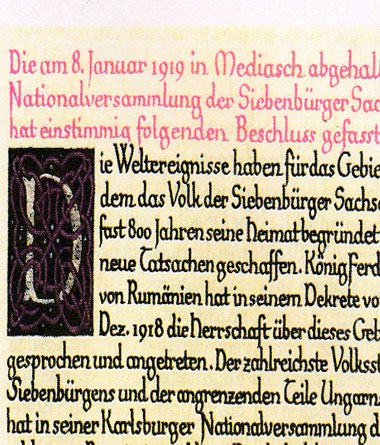 Die am 8. Januar 1919 in Mediasch abgehal
Nationalversammlung der Siebenbürger Sac
hat einstimmig folgenden Beschluss gefasst
Die Weltereignisse haben für das Gebie
dem das Volk der Siebenbürger Sachse
fast 800 Jahren seine Heimat begründet
neue Tatsachen geschaffen. König Ferd
von Rumänien hat in seinem Dekrete vo
Dez. 1918 die Herrschaft über dieses Geb
gesprochen und angetreten. Der zahlreichste Volksst
Siebenbürgens und der angrenzenden Teile Ungarns
hat in seiner Karlsburger Nationalversammlung d